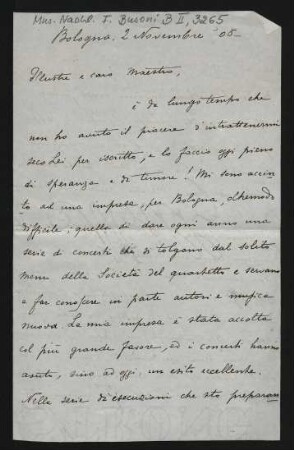 Mus. Nachl. F. Busoni B II, 3265
Bologna, 2 Novembre '05 –
Illustre e caro Maestro,
è da lungo tempo che
non ho avuto il piacere d'intrattenermi
seco Lei per iscritto, e lo faccio oggi pieno
di speranza e di timore! Mi sono accin
to ad una impresa, per Bologna,
difficile: quella di dare ogni anno una
serie di concerti che si tolgano dal solito
menu della Società del quartetto e servano
a far conoscere in parte autori e musica
nuova. La mia impresa è stata accolta
col più grande favore, ed i concerti hanno
avuto, sino ad oggi, un esito eccellente.
Nella serie di esecuzioni che sto preparan